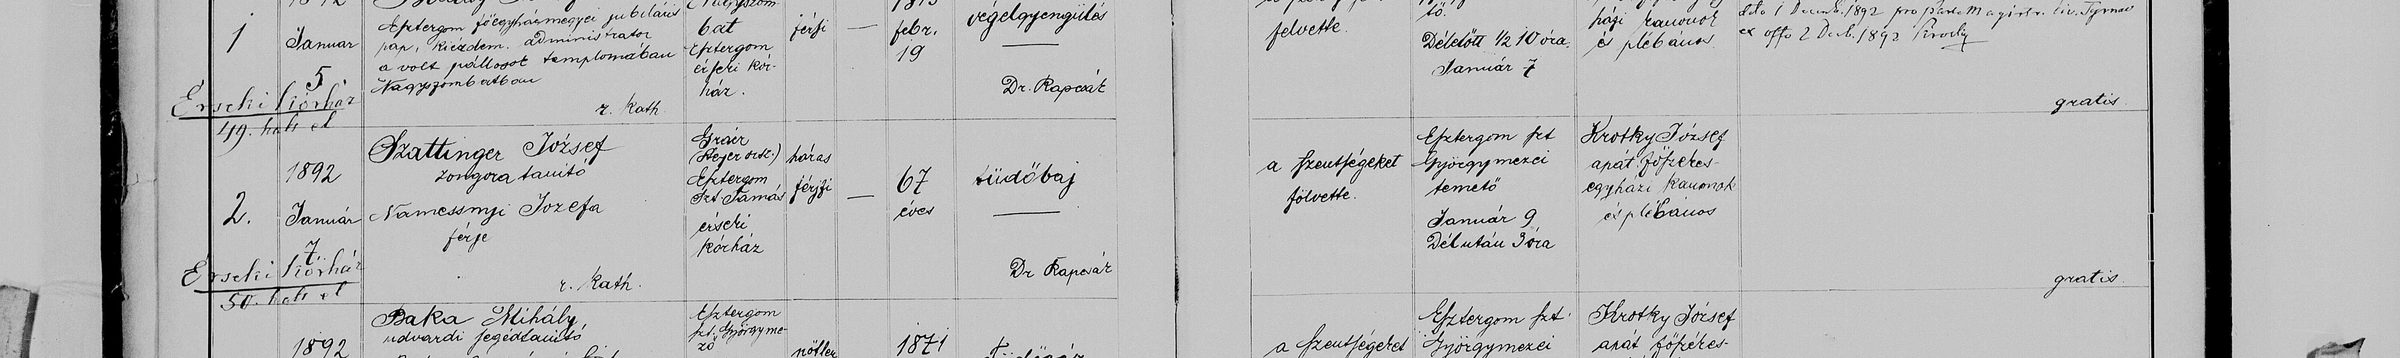 1
Januar
5
Esztergom főegyházmegyei jubiláris
pap, kiérdem. administrator
a volt pállosok templomában
Nagyszombatban
r. kath.
bat
Esztergom
érseki kór-
ház.
férfi
—
febr.
19
végelgyengülés
Dr. Rapcsák
felvette.
Délelőtt ½ 10 óra.
Január 7
házi kanonok
és plébános.
gratis.
Érseki Kórház
49.
1892
2.
Január
7.
Szattinger József
zongora tanitó
Namessnyi Jozefa
férje
r. kath.
Esztergom
Szt Tamás
érseki
kórház
házas
férfi
—
67
éves
tüdőbaj
Dr Rapcsák
a szentségeket
fölvette.
Esztergom szt
Györgymezei
temető
Január 9
Délután 3 óra
Krotky József
apát főszékes-
egyházi kanonok
és plébános
gratis.
Érseki Kórház
50.
1892
Baka Mihály
udvardi segédtanitó
Esztergom
szt. Györgyme-
ző
nőtlen
1871
a szentségeket
Esztergom szt.
Györgymezei
Krotky József
apát főszékes-